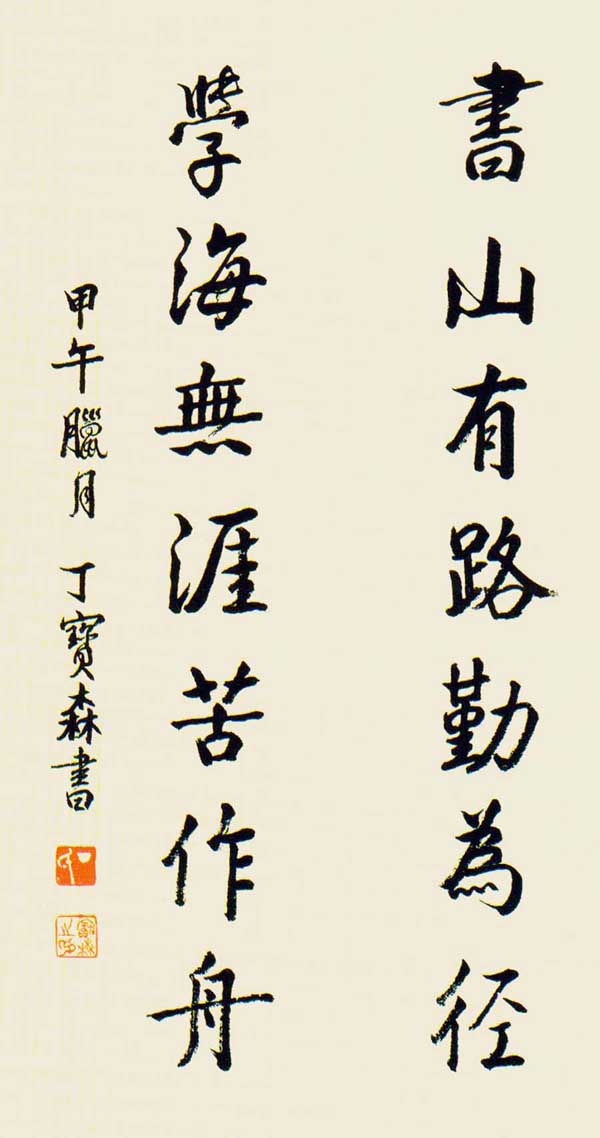 書山有路勤為径
學海無涯苦作舟
甲午臘月 丁寶森書